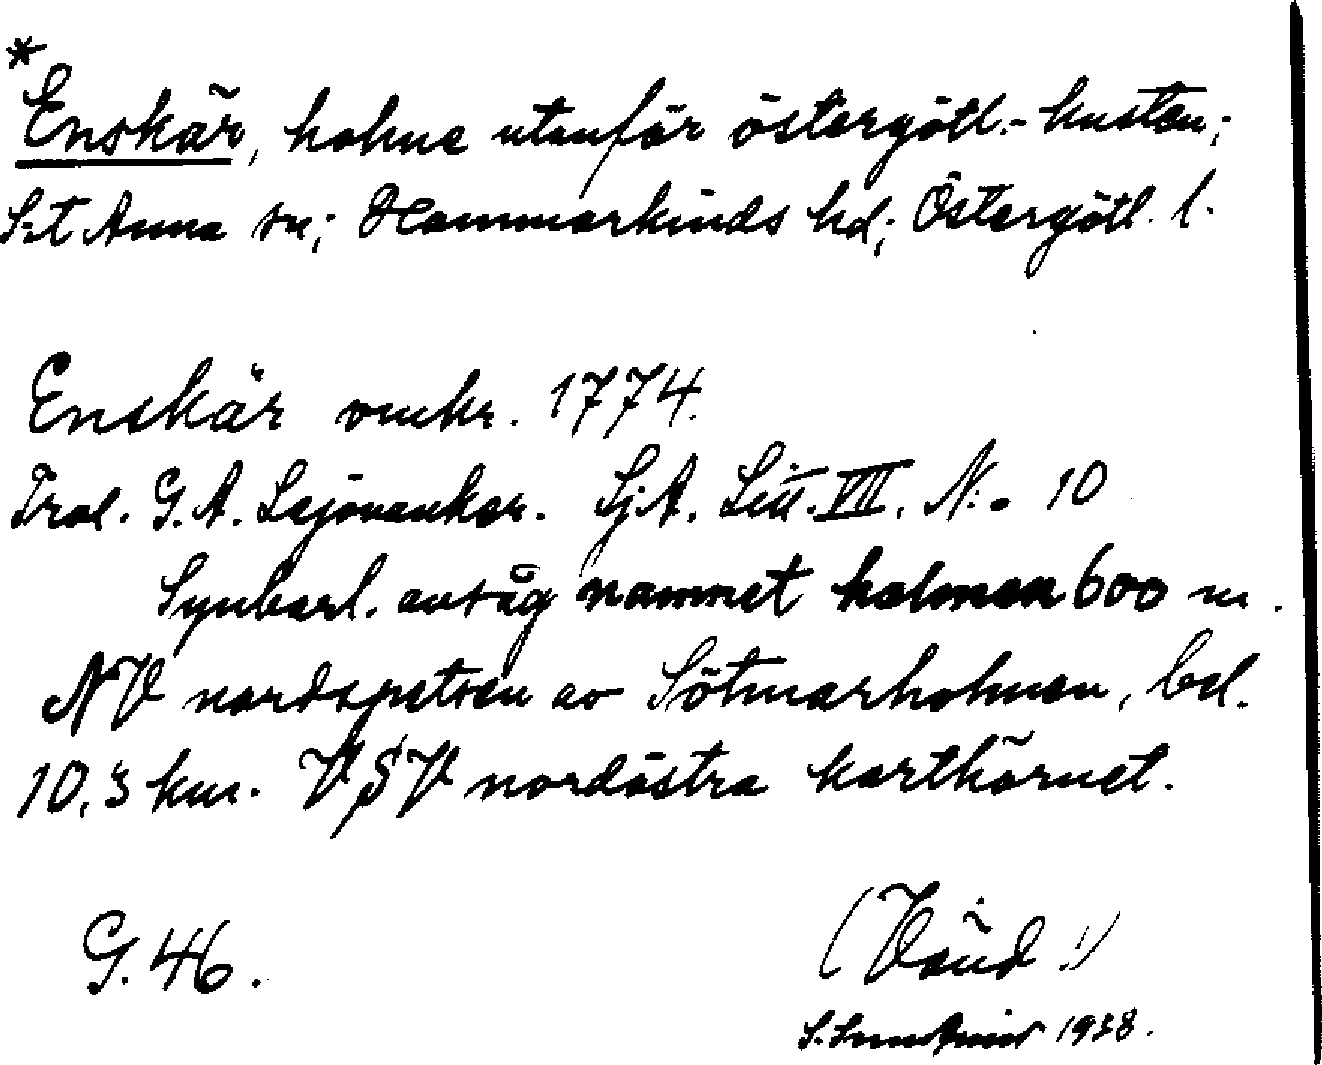 *
Enskär, holme utanför östergötl.-kusten;
S:t Anna sn; Hammarkinds hd; Östergötl. l.
Enskär omkr. 1774.
Trol. G. A. Lejonanker. SjA. Litt. VII. N:o 10
Synbarl. avsåg namnet holmen 600 m.
NV nordspetsen av Sötmarholmen, bel.
10,3 km. VSV nordöstra karthörnet.
G. 46.
(Vänd!)
1938.